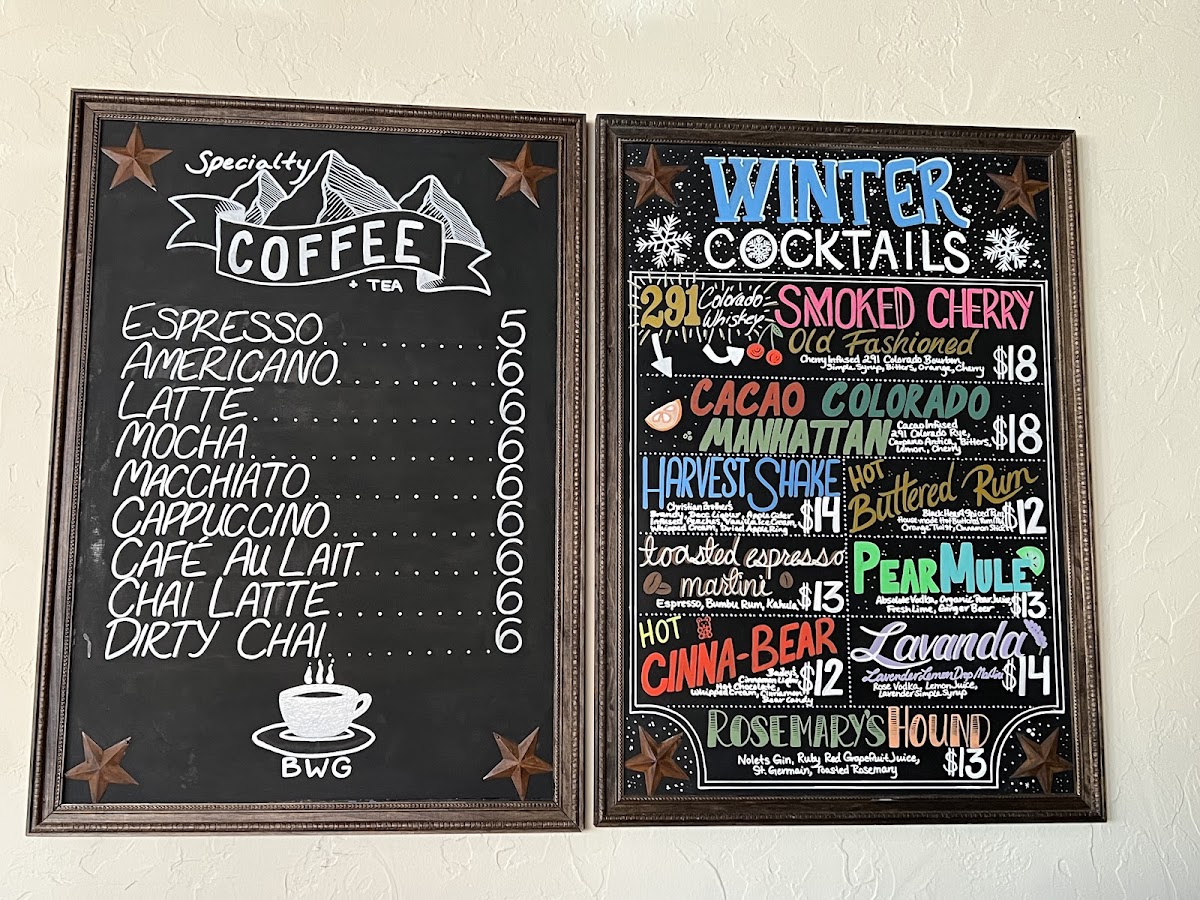 Specialty
COFFEE
+ TEA
ESPRESSO..........5
AMERICANO..........6
LATTE..........6
MOCHA..........6
MACCHIATO..........6
CAPPUCCINO..........6
CAFÉ AU LAIT..........6
CHAI LATTE..........6
DIRTY CHAI..........6
BWG
WINTER
COCKTAILS
291 Colorado Whiskey
SMOKED CHERRY
Old Fashioned
Cherry Infused 291 Colorado Bourbon,
Simple Syrup, Bitters, Orange, Cherry
$18
CACAO COLORADO
MANHATTAN
Cacao Infused
291 Colorado Rye,
Carpano Antica, Bitters,
Lemon, Cherry
$18
HARVEST SHAKE
Christian Brothers
Brandy, Apple Cider
Infused Peaches, Vanilla Ice Cream,
Whipped Cream, Dried Apple Ring
$14
HOT
Buttered Rum
Black Heart Spiced Rum,
House-made Hot Buttered Rum
Orange Twist, Cinnamon Stick
$12
toasted espresso
martini
Espresso, Bumbu Rum, Kahula
$13
PEAR MULE
Absolute Vodka, Organic Pear Juice
Fresh Lime, Ginger Beer
$13
HOT
CINNA-BEAR
Cinnamon
Hot Chocolate,
Whipped Cream, Cinnamon
Bear Candy
$12
Lavanda
Lavender Lemon Drop Martini
Rose Vodka, Lemon Juice,
Lavender Simple Syrup
$14
ROSEMARY'S HOUND
Nolets Gin, Ruby Red Grapefruit Juice,
St. Germain, Toasted Rosemary
$13